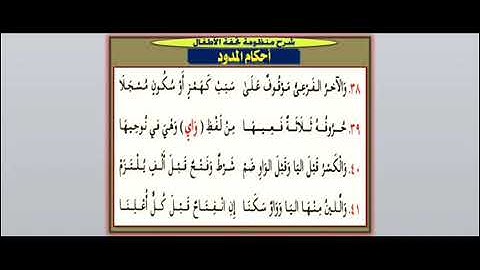 شرح منظومة تحفة الأطفال
أحكام المدود
٣٨. وَالْآخَرُ الْفَرْعِيُّ مَوْقُوفٌ عَلَىٰ سَبَبْ كَهَمْزٍ أَوْ سُكُونٍ مُسْجَلَا
٣٩. حُرُوفُهُ ثَلَاثَةٌ فَعِيهَا مِنْ لَفْظِ (وَايٍ) وَهْيَ فِي نُوحِيهَا
٤٠. وَالْكَسْرُ قَبْلَ الْيَا وَقَبْلَ الْوَاوِ ضَمْ شَرْطٌ وَفَتْحٌ قَبْلَ أَلْفٍ يُلْتَزَمْ
٤١. وَاللِّينُ مِنْهَا الْيَا وَوَاوٌ سَكَنَا إِنِ انْفِتَاحٌ قَبْلَ كُلٍّ أُعْلِنَا